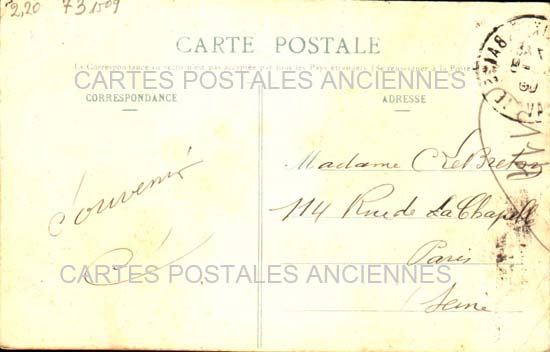 2,20 73 1509
CARTE POSTALE
La Correspondance au recto n'est pas acceptée par tous les Pays étrangers (Se renseigner à la Poste)
CARTES POSTALES ANCIENNES
CORRESPONDANCE
ADRESSE
Souvenir
Madame C LeBreton
114 Rue de La Chapelle
Paris
Seine
CARTES POSTALES ANCIENNES